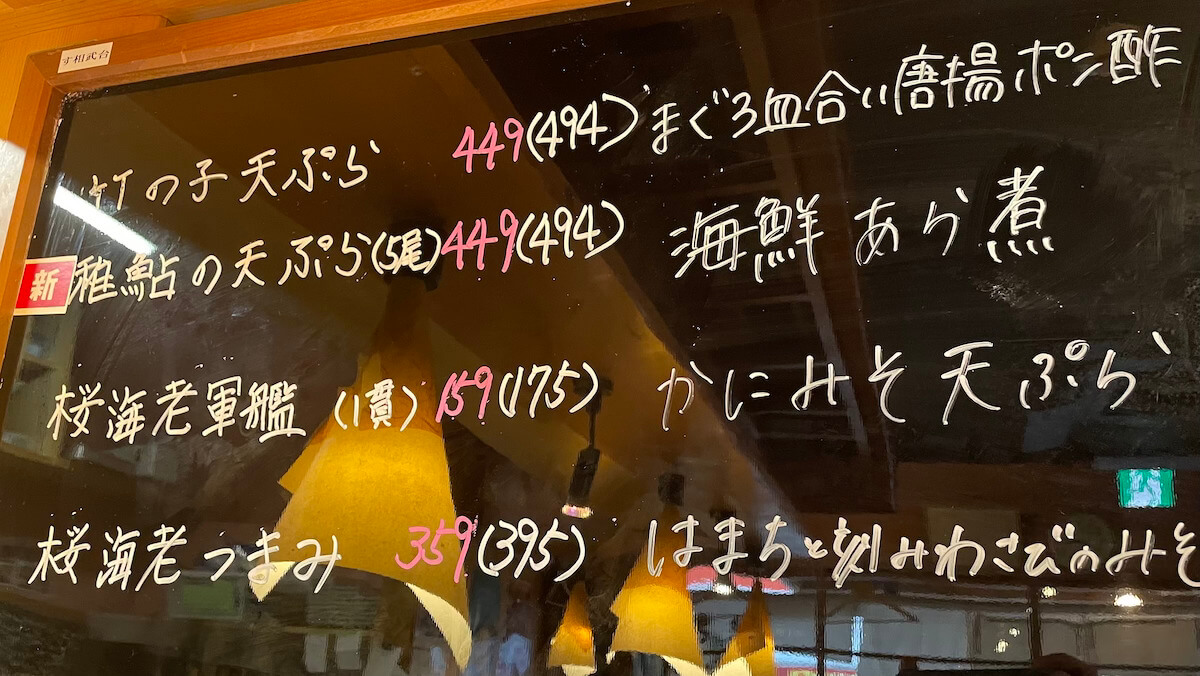 す相武台
竹の子天ぷら 449(494)
新 稚鮎の天ぷら(5尾) 449(494)
桜海老軍艦(1貫) 159(175)
桜海老つまみ 359(395)
まぐろ血合い唐揚ポン酢
海鮮あら煮
かにみそ天ぷら
はまちと刻みわさびのみそ